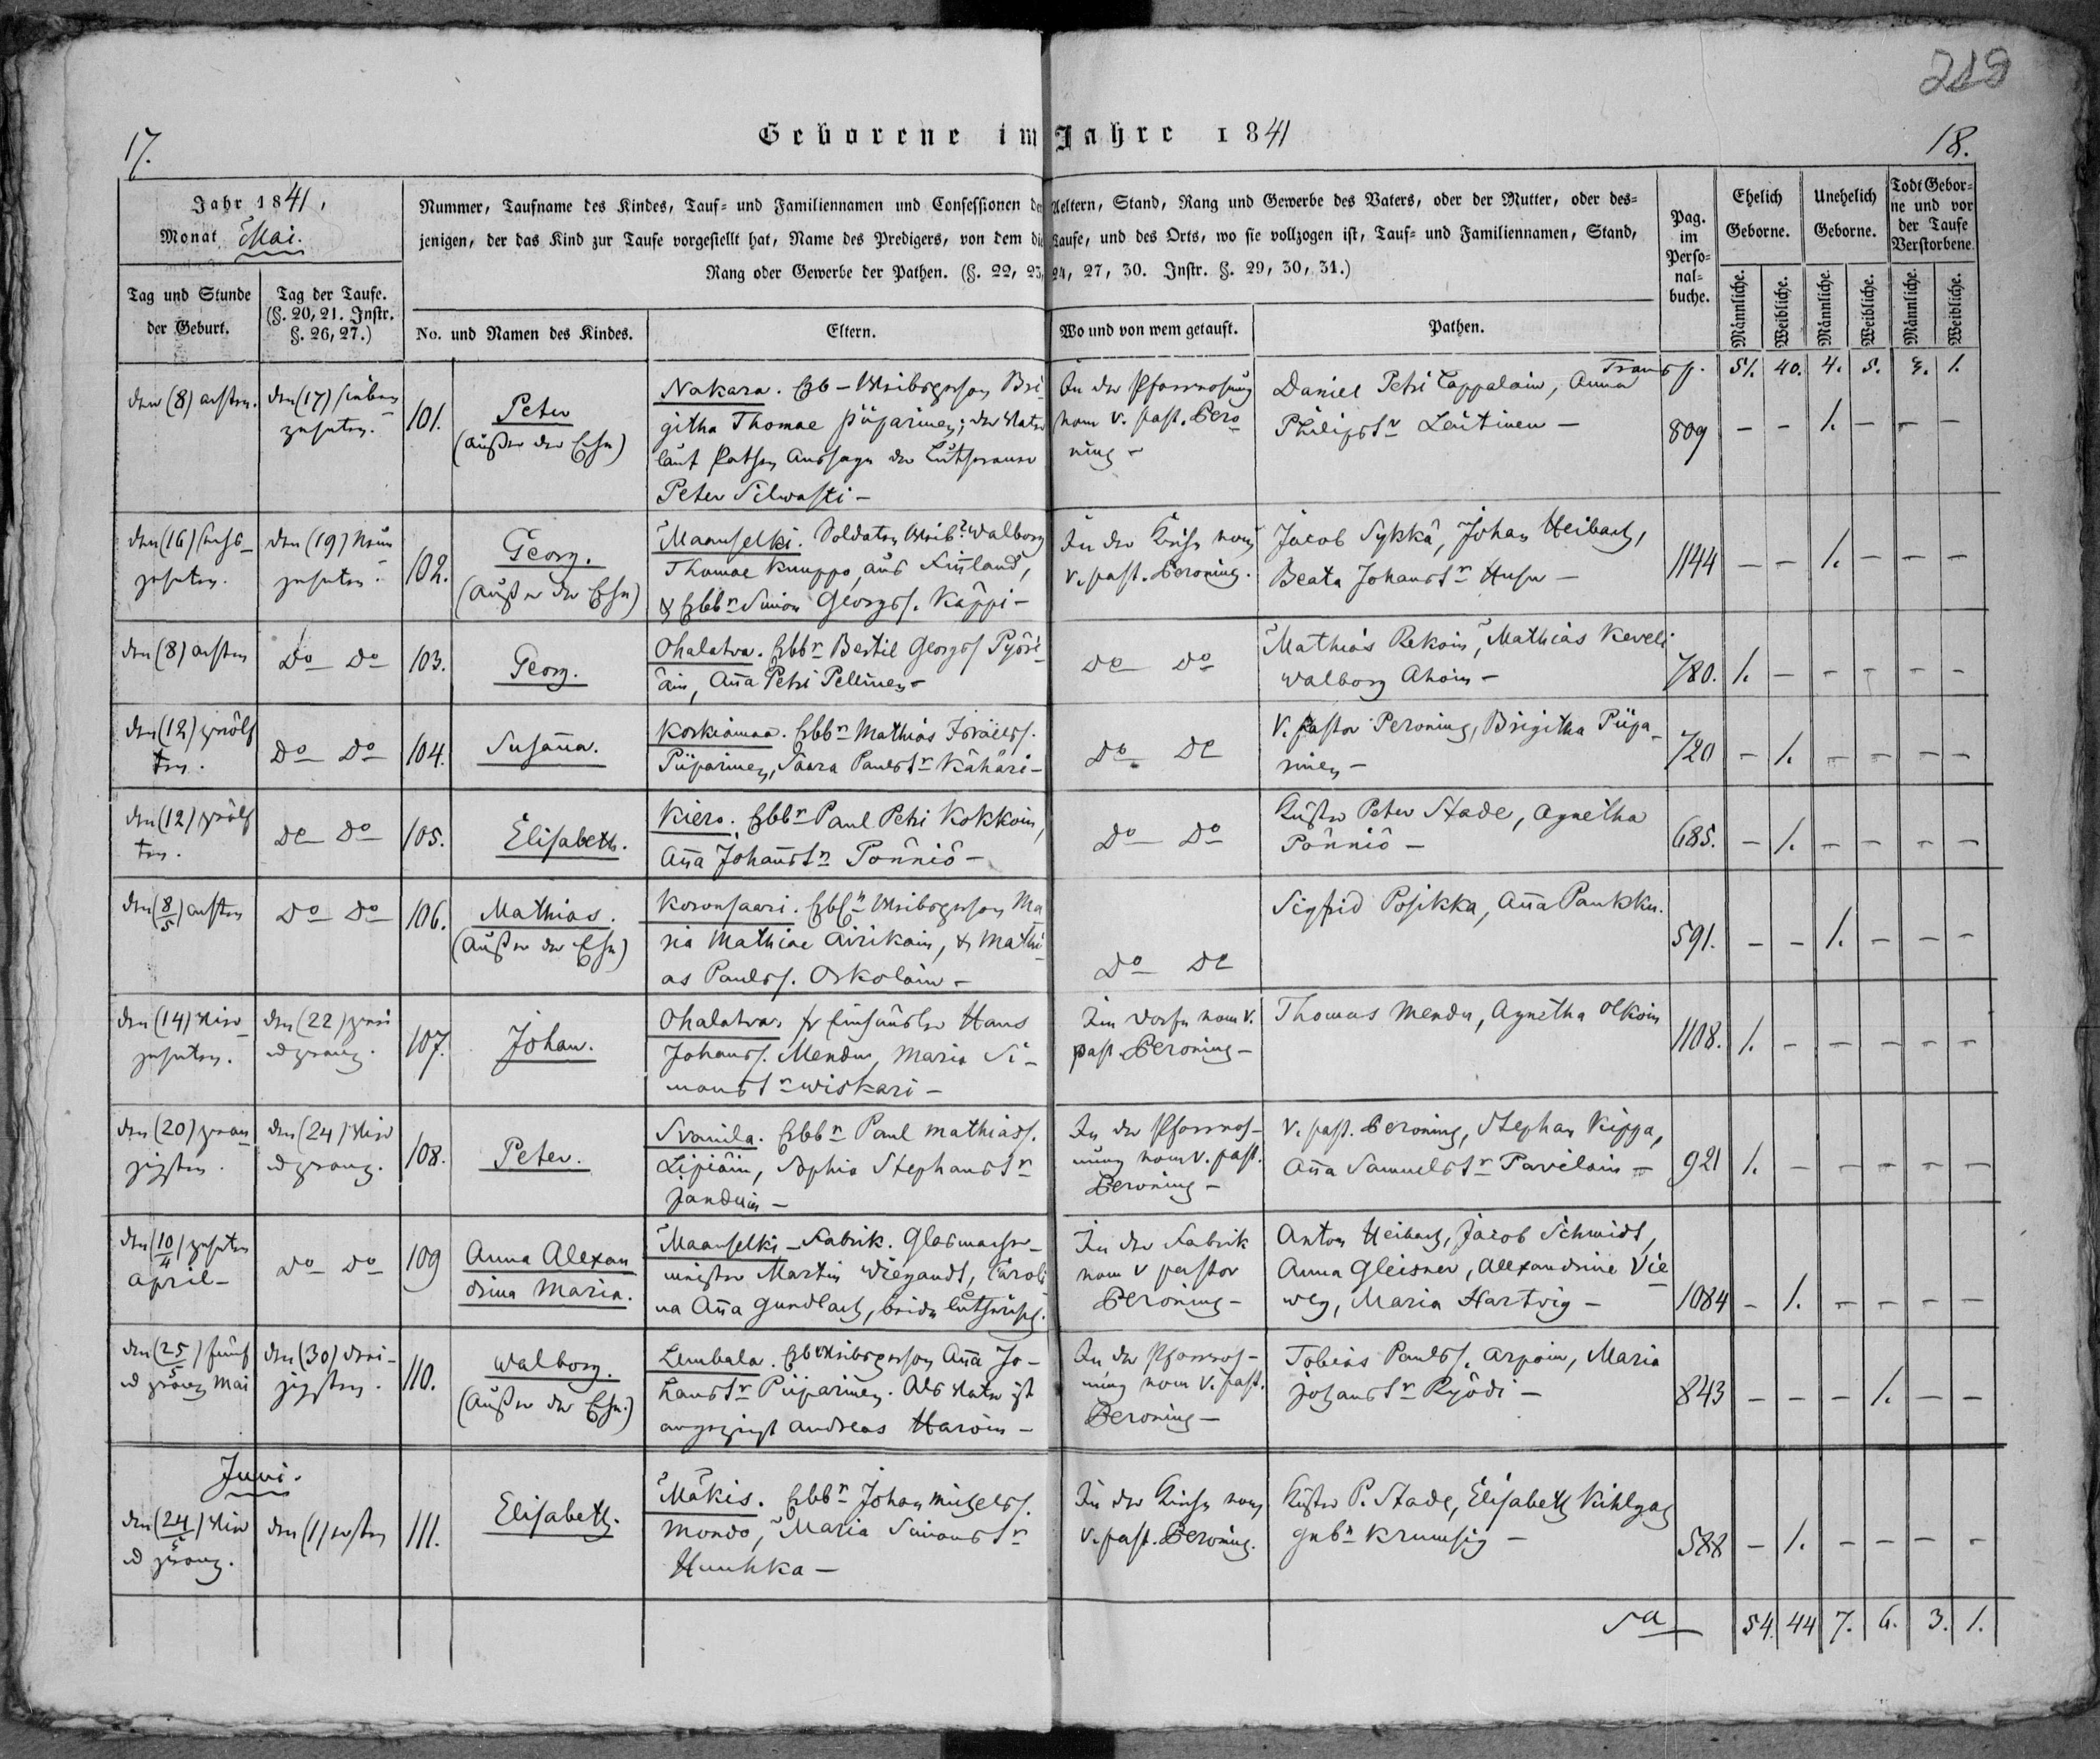 218
17.
Geborene im Jahre 1841
18.
Jahr 1841,
Monat Mai.
Nummer, Taufname des Kindes, Tauf- und Familiennamen und Confessionen der Aeltern, Stand, Rang und Gewerbe des Vaters, oder der Mutter, oder des-
jenigen, der das Kind zur Taufe vorgestellt hat, Name des Predigers, von dem die Taufe, und des Orts, wo sie vollzogen ist, Tauf- und Familiennamen, Stand,
Rang oder Gewerbe der Pathen. (§. 22, 23, 24, 27, 30. Instr. §. 29, 30, 31.)
Pag.
im
Perso-
nal-
buche.
Ehelich
Geborne.
Unehelich
Geborne.
Todt Gebor-
ne und vor
der Taufe
Verstorbene.
Tag und Stunde
der Geburt.
Tag der Taufe.
(§. 20, 21. Instr.
§. 26, 27.)
No. und Namen des Kindes.
Eltern.
Wo und von wem getauft.
Pathen.
Männliche.
Weibliche.
Männliche.
Weibliche.
Männliche.
Weibliche.
Transp. 51. 40. 4. 5. 3. 1.
den (8) achten.
den (17) sieben
zehnten.
101.
Peter
(außer der Ehe)
Nakara. Erb-Weibsperson Bri
githa Thomae Püparinen; der Vater
laut Aussage der Lutheraner
Peter Silwasti –
In der Pfarrwohnung
vom V. past. Pero
ning –
Daniel Petri Cappalain, Anna
Philipstr Leutinen –
809 – – 1. – – –
den (16) sechs
zehnten.
den (19) neun
zehnten.
102.
Georg.
(außer der Ehe)
Maanselki. Soldaten Weib Walborg
Thomae Knuppo aus Finland,
& Erbbr Simon Georgss. Käppi –
In der Kirche vom
V. past. Peroning.
Jacob Sykkä, Johan Heibach,
Beata Johanstr Husu –
1144 – – 1. – – –
den (8) achten
Do Do
103.
Georg.
Ohalatwa. Erbbr Bertil Georgss Pyöri
äin, Aña Petri Pellinen –
Do Do
Mathias Rekoin, Mathias Keveli
Walborg Ahoin –
780. 1. – – – – –
den (12) zwölf
ten.
Do Do
104.
Susaña.
Korkiamaa. Erbbr Mathias Israelss.
Püparinen, Saara Paulstr Kähäri –
Do Do
V. Pastor Peroning, Brigitha Püpa
rinen –
720 – 1. – – – –
den (12) zwölf
ten.
Do Do
105.
Elisabeth.
Kiero. Erbbr Paul Petri Kokkoin,
Aña Johanstr Pönniö –
Do Do
Küster Peter Stade, Agnetha
Pönniö –
685. – 1. – – – –
den (8/5) achten
Do Do
106.
Mathias.
(außer der Ehe)
Koronsaari. Weibsperson Ma
ria Mathiae Airikain, & Mathi
as Paulss. Oskolain –
Do Do
Sigfrid Posikka, Aña Paukku.
591. – – 1. – – –
den (14) vier
zehnten.
den (22) zwei
u zwanz.
107.
Johan.
Ohalatwa. Hans
Johanss. Mendu, Maria Si-
monstr Wiskari –
Im Dorfe vom V.
past. Peroning –
Thomas Mendu, Agnetha Olkoin
1108. 1. – – – – –
den (20) zwan
zigsten.
den (24) vier
u zwanz.
108.
Peter.
Svanila. Erbbr Paul Mathiass.
Lipiäin, Sophia Stephanstr
Janduin –
In der Pfarrwoh-
nung vom V. past.
Peroning –
V. past. Peroning, Stephan Kippa,
Aña Samuelstr Pavilain –
921 1. – – – – –
den (10/4) zehnten
April –
Do Do
109
Anna Alexan
drina Maria.
Maanselki – Fabrik. Glasmacher-
meister Martin Wiegandt, Caroli
na Aña Gundlach, beide lutherisch.
In der Fabrik
vom V pastor
Peroning –
Anton Heibach, Jacob Schmidt,
Anna Gleisner, Alexandrine Vie
weg, Maria Hartvig –
1084 – 1. – – – –
den (25/5) fünf
u zwanz Mai
den (30) drei-
zigsten.
110.
Walborg.
(außer der Ehe.)
Lembala. Erb Weibsperson Aña Jo-
hanstr Püparinen. Als Vater ist
angezeigt Andreas Haroin –
In der Pfarrwoh-
nung vom V. past.
Peroning –
Tobias Paulss. Arpoin, Maria
Johanstr Ryödi –
843 – – – 1. – –
Juni.
den (24/5) vier
u zwanz.
den (1) ersten
111.
Elisabeth.
Mäkis. Erbbr Johan Michelss.
Mondo, Maria Simonstr
Huuhka –
In der Kirche vom
V. past. Peroning.
Küster P. Stade, Elisabeth Kihlgas
gebn Krumsig –
588 – 1. – – – –
Sa 54. 44 7. 6. 3. 1.